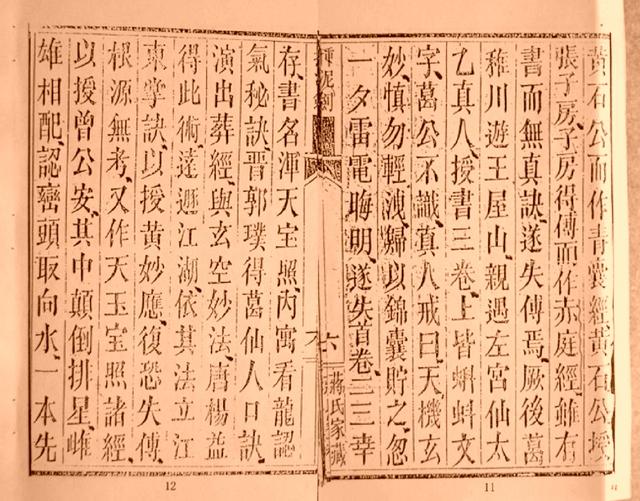 黃石公而作青囊經黃石公授
張子房子房得傳而作赤庭經雖有
書而無真訣遂失傳焉厥後葛
稚川遊王屋山親遇左宮仙太
乙真人授書三卷上皆蝌蚪文
字葛公不識真人戒曰天機玄
妙慎勿輕洩歸以錦囊貯之忽
一夕雷電晦明遂失首卷二三幸
六
蔣氏家藏
存書名渾天宝照內寓看龍認
氣秘訣晉郭璞得葛仙人口訣
演出葬經與玄空妙法唐楊益
得此術遠遯江湖依其法立江
東掌訣以授黃妙應復恐失傳
根源無考又作天玉宝照諸經
以授曾公安其中顛倒排星雌
雄相配認巒頭取向水一本先
12
11